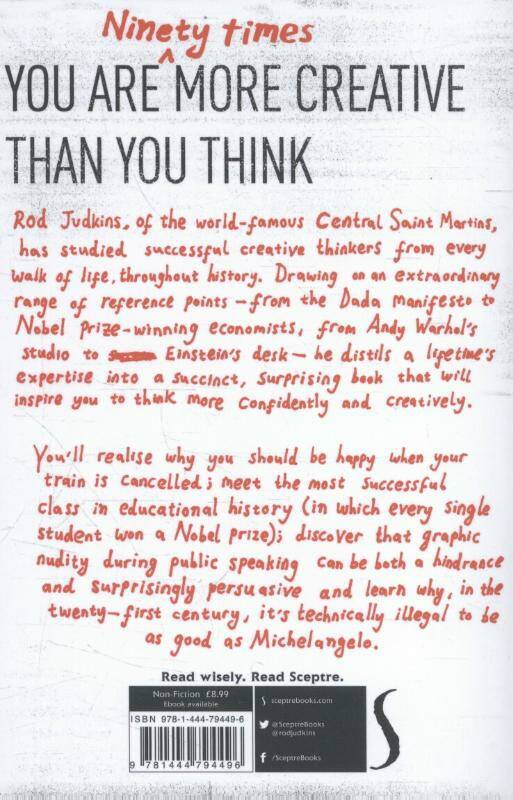 Ninety times
YOU ARE MORE CREATIVE
THAN YOU THINK
Rod Judkins, of the world-famous Central Saint Martins,
has studied successful creative thinkers from every
walk of life, throughout history. Drawing on an extraordinary
range of reference points – from the Dada Manifesto to
Nobel Prize-winning economists, from Andy Warhol's
studio to Einstein's desk – he distils a lifetime's
expertise into a succinct, surprising book that will
inspire you to think more confidently and creatively.
You'll realise why you should be happy when your
train is cancelled; meet the most successful
class in educational history (in which every single
student won a Nobel prize); discover that graphic
nudity during public speaking can be both a hindrance
and surprisingly persuasive and learn why, in the
twenty-first century, it's technically illegal to be
as good as Michelangelo.
Read wisely. Read Sceptre.
Non-Fiction £8.99
Ebook available
ISBN 978-1-444-79449-6
9 781444 794496
S sceptrebooks.com
@SceptreBooks
@rodjudkins
f /SceptreBooks
S